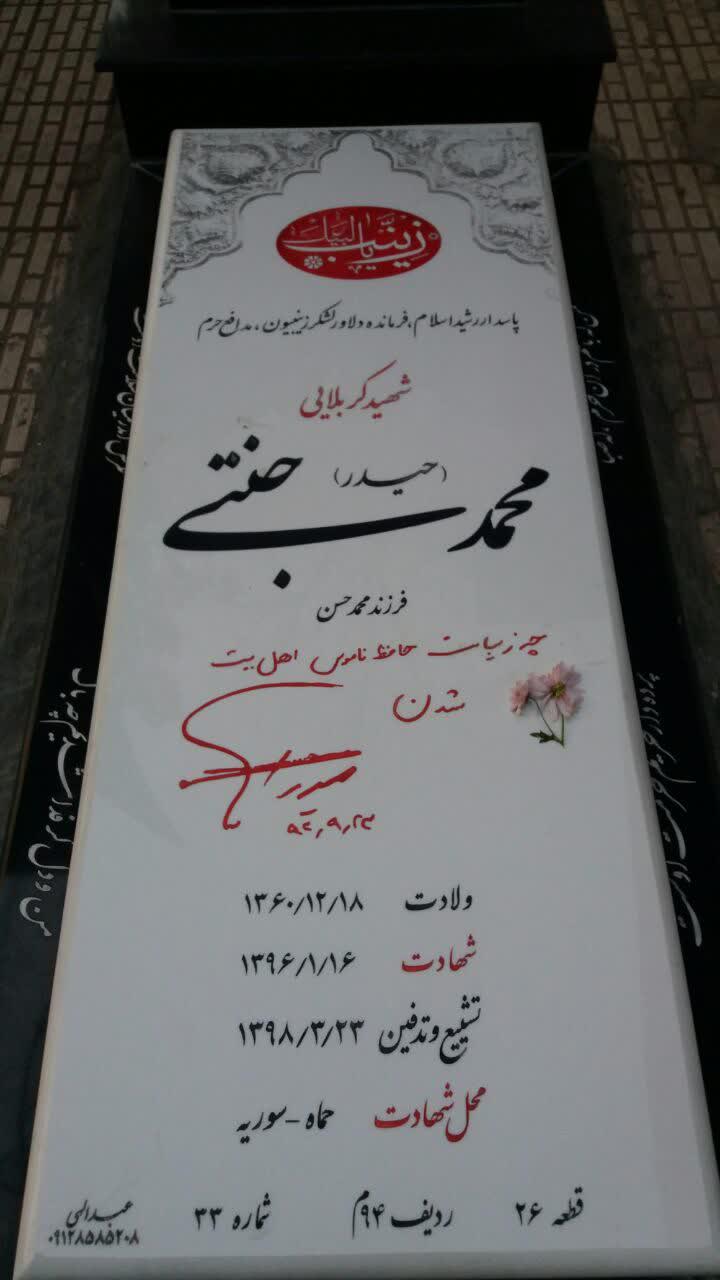 زینب
پاسدار رشید اسلام، فرمانده دلاور لشکر زینبیون، مدافع حرم
شهید کربلایی
(حیدر)
محمد جنتی
فرزند محمد حسن
چه زیباست حافظ ناموس اهل بیت
شدن
حیدر
۹۲,۹,۲۳
ولادت ۱۳۶۰/۱۲/۱۸
شهادت ۱۳۹۶/۱/۱۶
تشییع و تدفین ۱۳۹۸/۳/۲۳
محل شهادت حماه - سوریه
قطعه ۲۶ ردیف ۹۴م شماره ۳۳
عبدالهی
۰۹۱۲۸۵۸۵۲۰۸